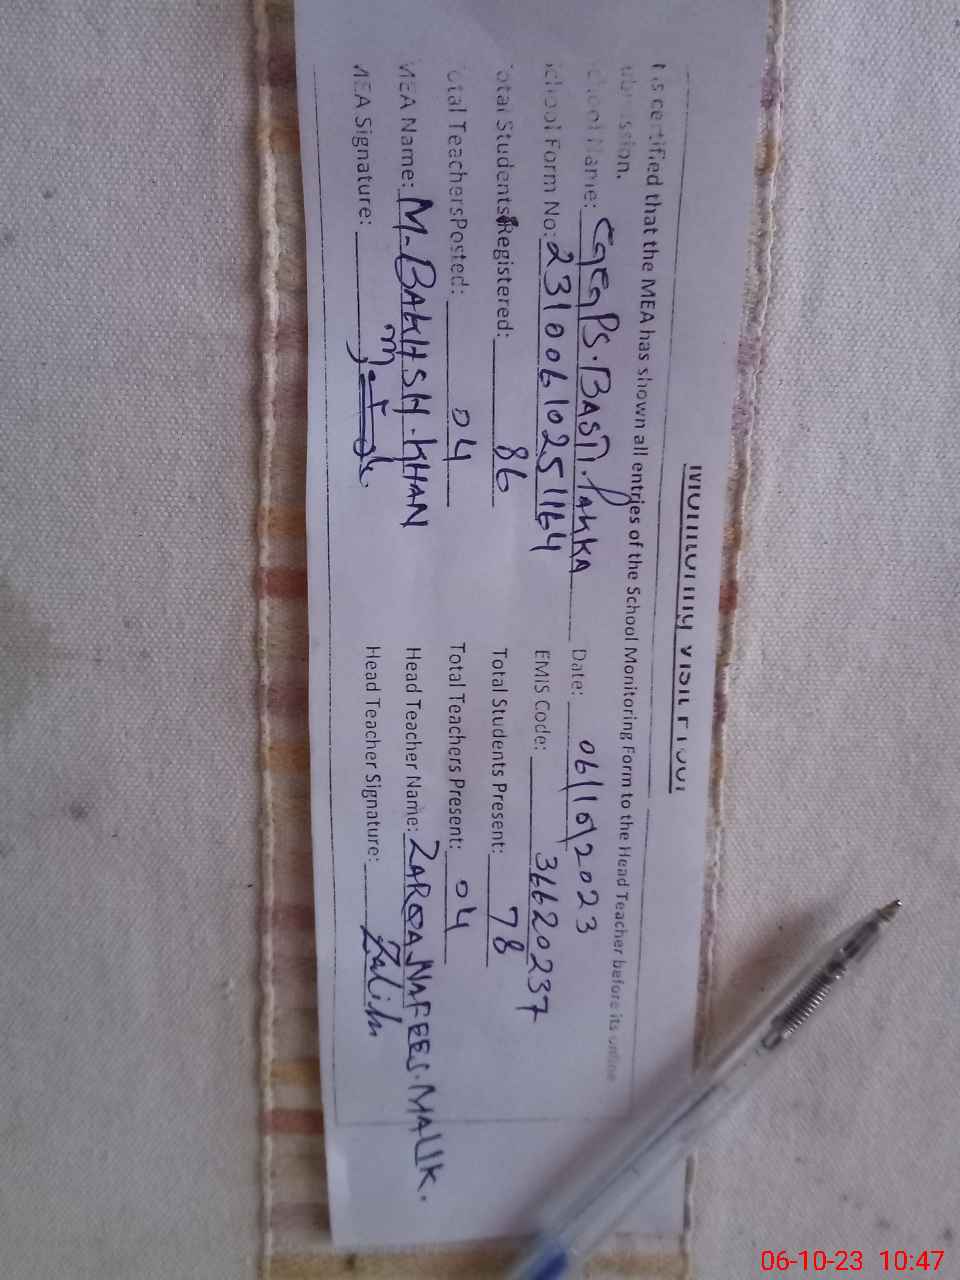 Monitoring Visit Proof
It is certified that the MEA has shown all entries of the School Monitoring Form to the Head Teacher before its online
submission.
School Name: GGPS. BASTI. PAKKA Date: 06/10/2023
School Form No: 23100610251164 EMIS Code: 36620237
Total Students Registered: 86 Total Students Present: 78
Total TeachersPosted: 04 Total Teachers Present: 04
MEA Name: M. BAKHSH. KHAN Head Teacher Name: ZARQA NAFEES. MALIK.
MEA Signature: Head Teacher Signature:
06-10-23 10:47